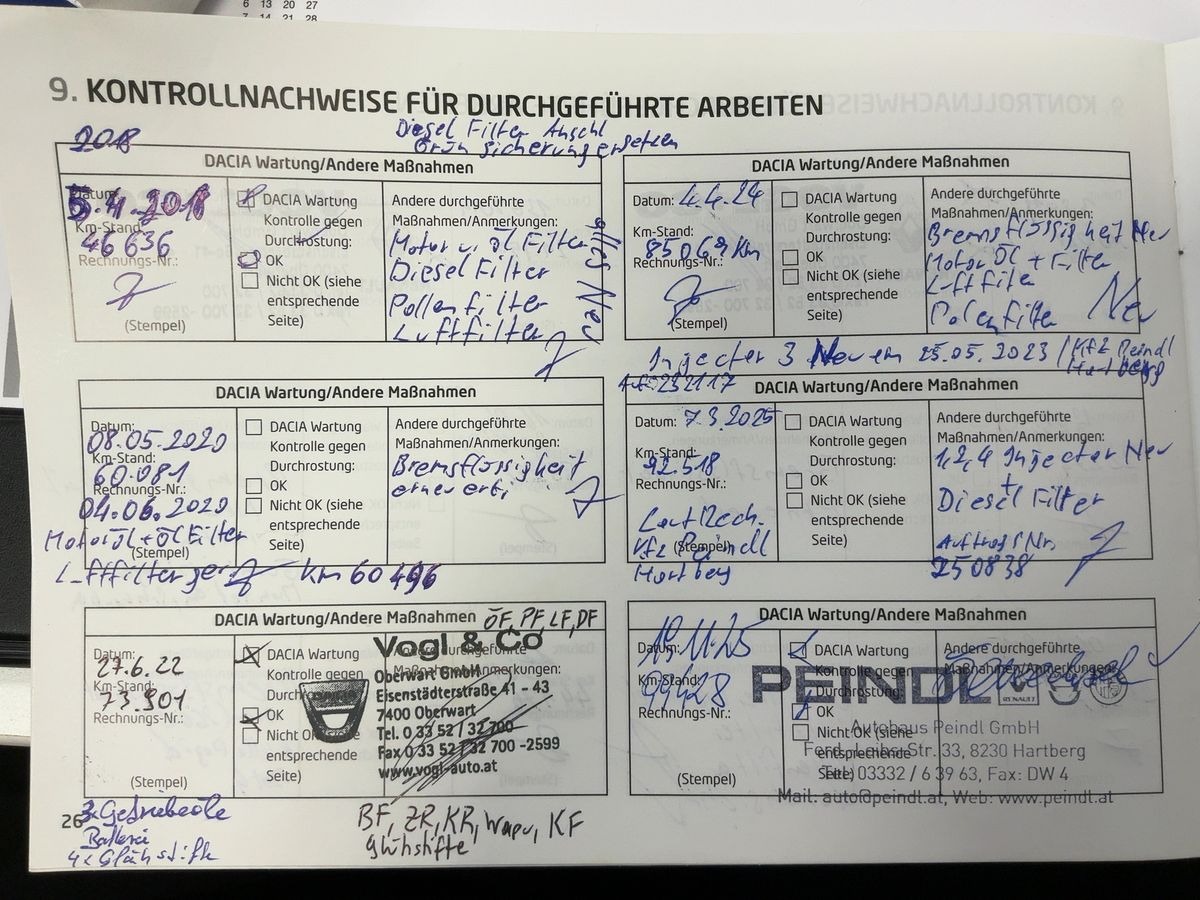 6 13 20 27
7 14 21 28
9. KONTROLLNACHWEISE FÜR DURCHGEFÜHRTE ARBEITEN
2018
Diesel Filter Anschl
Grün Sicherung ersetzen
DACIA Wartung/Andere Maßnahmen
Datum:
5.4.2018
Km-Stand:
46 636
Rechnungs-Nr.:
(Stempel)
DACIA Wartung
Kontrolle gegen
Durchrostung:
OK
Nicht OK (siehe
entsprechende
Seite)
Andere durchgeführte
Maßnahmen/Anmerkungen:
Motor u. Öl Filter
Diesel Filter
Pollenfilter
Luftfilter
alles Neu
DACIA Wartung/Andere Maßnahmen
Datum: 4.4.24
Km-Stand:
85069 Km
Rechnungs-Nr.:
(Stempel)
DACIA Wartung
Kontrolle gegen
Durchrostung:
OK
Nicht OK (siehe
entsprechende
Seite)
Andere durchgeführte
Maßnahmen/Anmerkungen:
Bremsflüssigkeit Neu
Motor Öl + Filter
Luftfilter
Polenfilter Neu
Injecter 3 Neu am 25.05.2023 / Kfz Peindl
Hartberg
232117
DACIA Wartung/Andere Maßnahmen
Datum:
08.05.2020
Km-Stand:
60.081
Rechnungs-Nr.:
04.06.2020
Motoröl + Öl Filter
(Stempel)
Luftfilter
Km 60 496
DACIA Wartung
Kontrolle gegen
Durchrostung:
OK
Nicht OK (siehe
entsprechende
Seite)
Andere durchgeführte
Maßnahmen/Anmerkungen:
Bremsflüssigkeit
erneuert.
DACIA Wartung/Andere Maßnahmen
Datum: 7.3.2025
Km-Stand:
92.518
Rechnungs-Nr.:
Laut Rech.
Kfz Peindl
(Stempel)
Hartberg
DACIA Wartung
Kontrolle gegen
Durchrostung:
OK
Nicht OK (siehe
entsprechende
Seite)
Andere durchgeführte
Maßnahmen/Anmerkungen:
1,2,4 Injecter Neu
+
Diesel Filter
Auftrags Nr.
250838
DACIA Wartung/Andere Maßnahmen ÖF, PF, LF, DF
Datum:
27.6.22
Km-Stand:
73.901
Rechnungs-Nr.:
(Stempel)
DACIA Wartung
Kontrolle gegen
Durchrostung:
OK
Nicht OK (siehe
entsprechende
Seite)
Andere durchgeführte
Maßnahmen/Anmerkungen:
Vogl & Co
Oberwart GmbH
Eisenstädterstraße 41 - 43
7400 Oberwart
Tel. 0 33 52 / 32 700
Fax 0 33 52 / 32 700 -2599
www.vogl-auto.at
BF, ZR, KR, Wapu, KF
Glühstifte
DACIA Wartung/Andere Maßnahmen
Datum:
19.11.25
Km-Stand:
99428
Rechnungs-Nr.:
(Stempel)
DACIA Wartung
Kontrolle gegen
Durchrostung:
OK
Nicht OK (siehe
entsprechende
Seite)
Andere durchgeführte
Maßnahmen/Anmerkungen:
PEINDL
RENAULT
Autobaus Peindl GmbH
Ferd.-Leihs-Str. 33, 8230 Hartberg
Tel.: 03332 / 6 39 63, Fax: DW 4
Mail: auto@peindl.at, Web: www.peindl.at
26
Getriebeöle
Batterei
4x Glühstifte